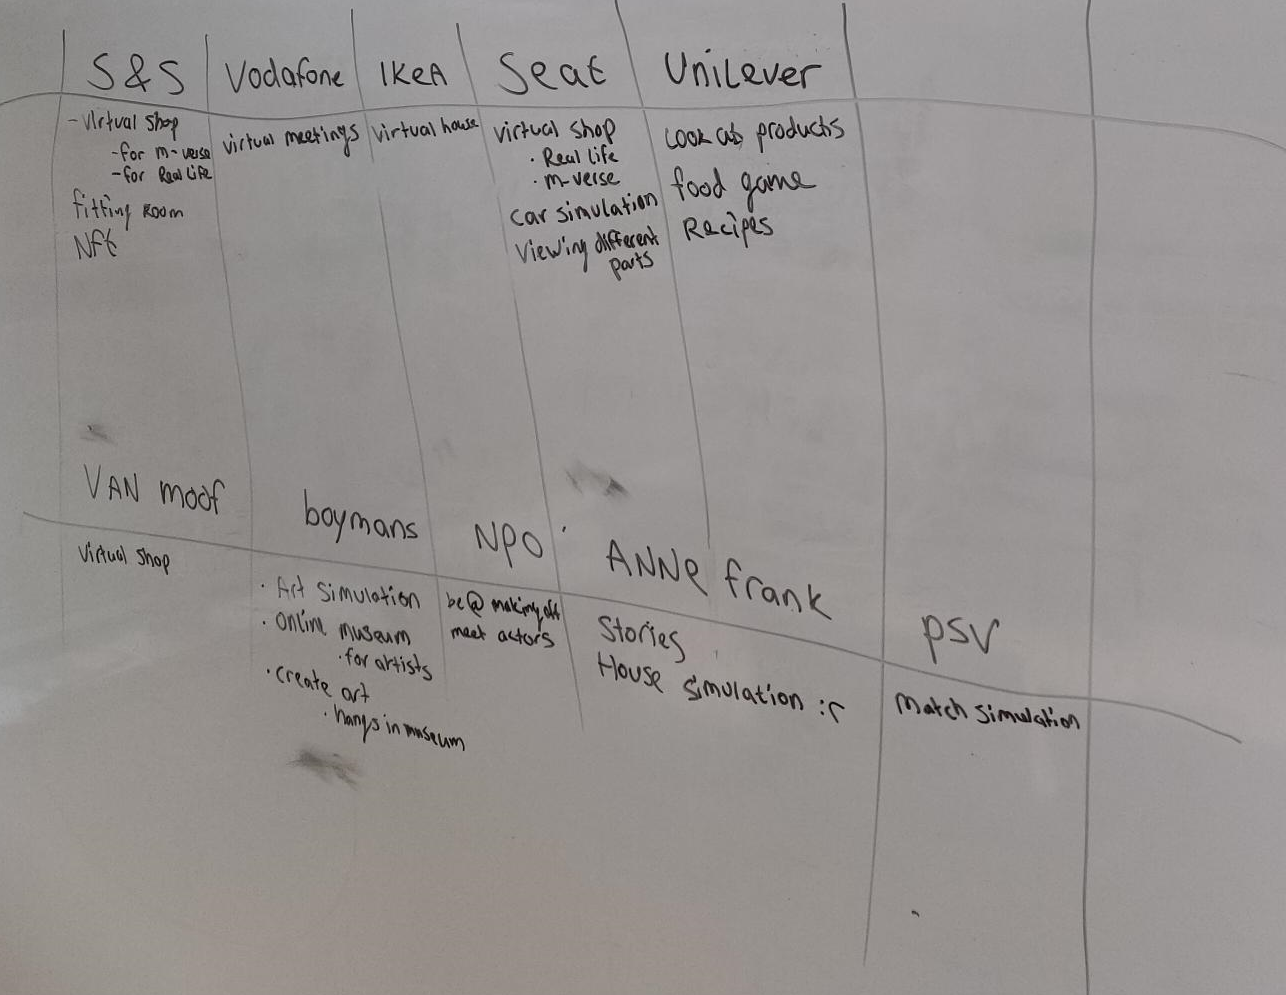 S&S
Vodafone
IKeA
Seat
Unilever
- virtual shop
-for m-verse
-for Real Life
fitting Room
Nft
virtual meetings
virtual house
virtual shop
· Real life
· m-verse
car simulation
Viewing different
parts
Look at products
food game
Recipes
VAN moof
boymans
NPO
ANNe frank
PSV
Virtual shop
· Art simulation
· Online museum
· for artists
· create art
· hangs in museum
be @ making off
meet actors
Stories
House simulation :(
Match simulation